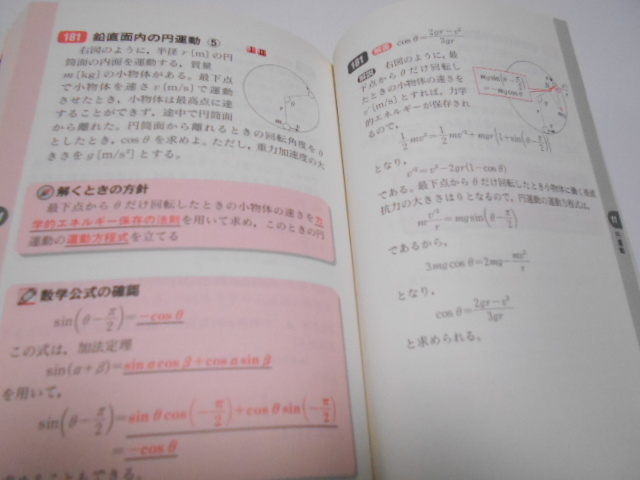 181 鉛直面内の円運動 ⑤
右図のように，半径 r [m] の円
筒面の内面を運動する，質量
m [kg] の小物体がある。最下点
で小物体を速さ v [m/s] で運動
させたとき，小物体は最高点に達
することができず，途中で円筒面
から離れた。円筒面から離れるときの回転角度をθ
としたとき，cosθを求めよ。ただし，重力加速度の大
きさを g [m/s²] とする。
解くときの方針
最下点からθだけ回転したときの小物体の速さを力
学的エネルギー保存の法則を用いて求め，このときの円
運動の運動方程式を立てる
数学公式の確認
sin(θ−π/2)=−cosθ
この式は，加法定理
sin(α+β)=sinαcosβ+cosαsinβ
を用いて，
sin(θ−π/2)=sinθcos(−π/2)+cosθsin(−π/2)
=−cosθ
こともできる。
181 解答 cosθ=(2gr−v²)/3gr
解説 右図のように，最
下点からθだけ回転し
たときの小物体の速さを
v′[m/s] とすれば，力学
的エネルギーが保存され
るので，
mg sin(θ−π/2)
=−mg cosθ
1/2 mv²=1/2 mv′²+mgr{1+sin(θ−π/2)}
となり，
v′²=v²−2gr(1−cosθ)
である。最下点からθだけ回転したとき小物体に働く垂直
抗力の大きさは0となるので，円運動の運動方程式は，
m v′²/r=mg sin(θ−π/2)
であるから，
3mg cosθ=2mg−mv²/r
となり，
cosθ=(2gr−v²)/3gr
と求められる。